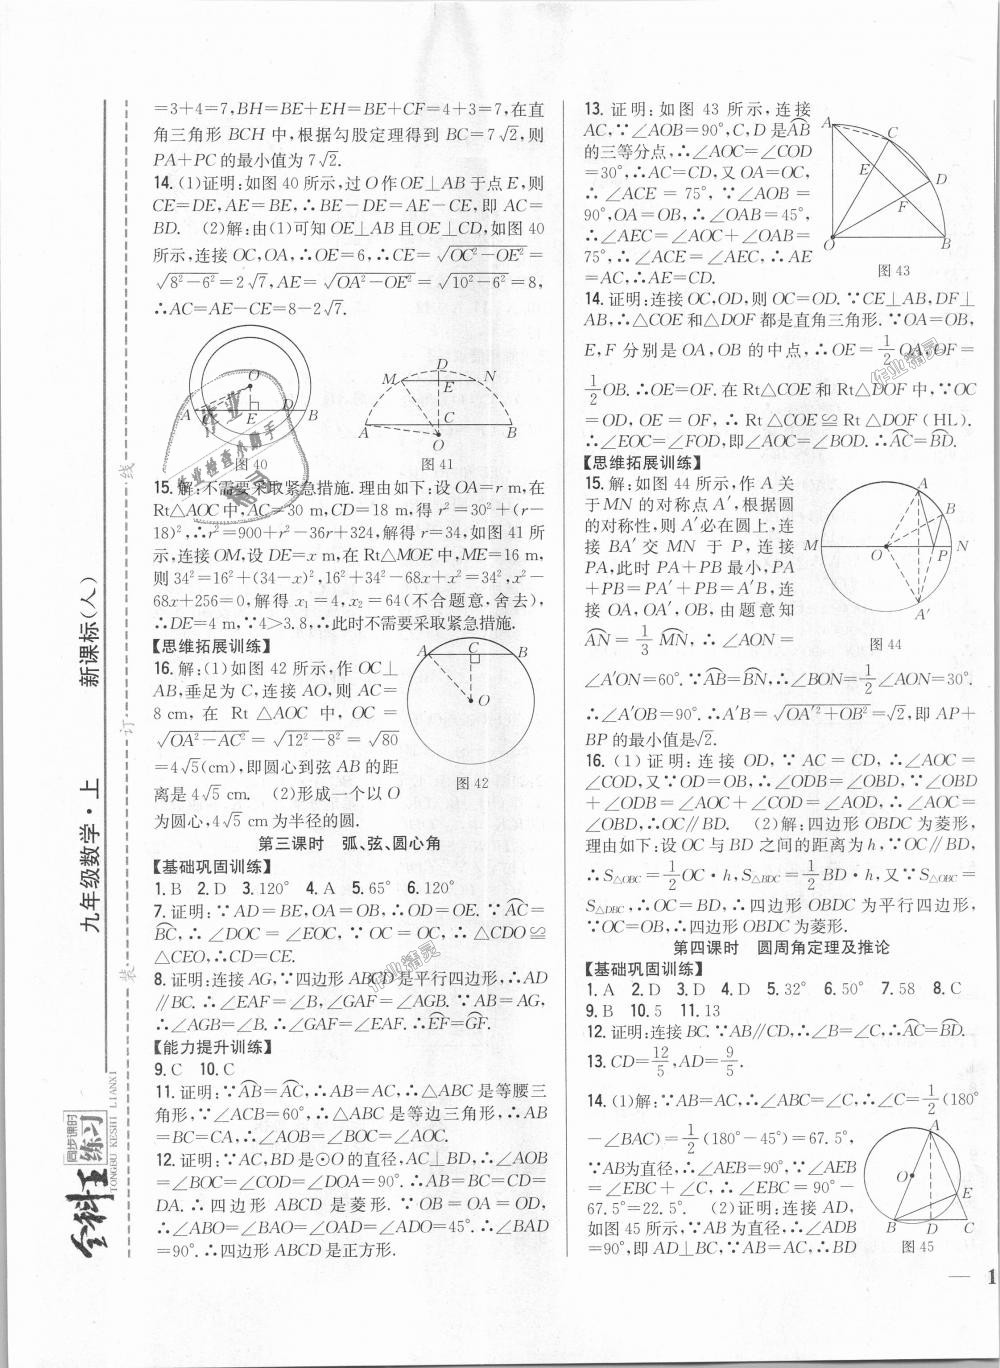 =3+4=7,BH=BE+EH=BE+CF=4+3=7,在直
角三角形 BCH 中,根据勾股定理得到 BC=7√2,则
PA+PC 的最小值为 7√2.
14. (1)证明:如图 40 所示,过 O 作 OE⊥AB 于点 E,则
CE=DE,AE=BE,∴BE-DE=AE-CE,即 AC=
BD. (2)解:由(1)可知 OE⊥AB 且 OE⊥CD,如图 40
所示,连接 OC,OA,∴OE=6,∴CE=√(OC²-OE²)=
√(8²-6²)=2√7,AE=√(OA²-OE²)=√(10²-6²)=8,
∴AC=AE-CE=8-2√7.
O
A C E D B
图 40
D
M E N
C
A O B
图 41
15. 解:不需要采取紧急措施. 理由如下:设 OA=r m,在
Rt△AOC 中,AC=30 m,CD=18 m,得 r²=30²+(r-
18)²,∴r²=900+r²-36r+324,解得 r=34,如图 41 所
示,连接 OM,设 DE=x m,在 Rt△MOE 中,ME=16 m,
则 34²=16²+(34-x)²,16²+34²-68x+x²=34²,x²-
68x+256=0,解得 x₁=4,x₂=64(不合题意,舍去),
∴DE=4 m,∵4>3.8,∴此时不需要采取紧急措施.
【思维拓展训练】
16. 解:(1)如图 42 所示,作 OC⊥
AB,垂足为 C,连接 AO,则 AC=
8 cm,在 Rt △AOC 中,OC=
√(OA²-AC²)=√(12²-8²)=√80
=4√5(cm),即圆心到弦 AB 的距
离是 4√5 cm. (2)形成一个以 O
为圆心,4√5 cm 为半径的圆.
A C B
O
图 42
第三课时 弧、弦、圆心角
【基础巩固训练】
1. B 2. D 3. 120° 4. A 5. 65° 6. 120°
7. 证明:∵AD=BE,OA=OB,∴OD=OE. ∵A͡C=
B͡C,∴∠DOC=∠EOC,∵OC=OC,∴△CDO≌
△CEO,∴CD=CE.
8. 证明:连接 AG,∵四边形 ABCD 是平行四边形,∴AD
∥BC. ∴∠EAF=∠B,∠GAF=∠AGB. ∵AB=AG,
∴∠AGB=∠B. ∴∠GAF=∠EAF. ∴E͡F=G͡F.
【能力提升训练】
9. C 10. C
11. 证明:∵A͡B=A͡C,∴AB=AC,∴△ABC 是等腰三
角形,∵∠ACB=60°,∴△ABC 是等边三角形,∴AB
=BC=CA,∴∠AOB=∠BOC=∠AOC.
12. 证明:∵AC,BD 是⊙O 的直径,AC⊥BD,∴∠AOB
=∠BOC=∠COD=∠DOA=90°. ∴AB=BC=CD=
DA. ∴四边形 ABCD 是菱形. ∵OB=OA=OD,
∴∠ABO=∠BAO=∠OAD=∠ADO=45°. ∴∠BAD
=90°. ∴四边形 ABCD 是正方形.
13. 证明:如图 43 所示,连接
AC,∵∠AOB=90°,C,D 是A͡B
的三等分点,∴∠AOC=∠COD
=30°,∴AC=CD,又 OA=OC,
∴∠ACE=75°,∵∠AOB=
90°,OA=OB,∴∠OAB=45°,
∴∠AEC=∠AOC+∠OAB=
75°,∴∠ACE=∠AEC,∴AE
=AC,∴AE=CD.
A C
E D
F
O B
图 43
14. 证明:连接 OC,OD,则 OC=OD. ∵CE⊥AB,DF⊥
AB,∴△COE 和△DOF 都是直角三角形. ∵OA=OB,
E,F 分别是 OA,OB 的中点,∴OE=1/2 OA,OF=
1/2 OB. ∴OE=OF. 在 Rt△COE 和 Rt△DOF 中,∵OC
=OD,OE=OF,∴Rt△COE≌Rt△DOF (HL).
∴∠EOC=∠FOD,即∠AOC=∠BOD. ∴A͡C=B͡D.
【思维拓展训练】
15. 解:如图 44 所示,作 A 关
于 MN 的对称点 A′,根据圆
的对称性,则 A′必在圆上,连
接 BA′交 MN 于 P,连接
PA,此时 PA+PB 最小,PA
+PB=PA′+PB=A′B,连
接 OA,OA′,OB,由题意知
A͡N=1/3 M͡N,∴∠AON=
A
B
M O P N
A′
图 44
∠A′ON=60°. ∵A͡B=B͡N,∴∠BON=1/2∠AON=30°.
∴∠A′OB=90°. ∴A′B=√(OA′²+OB²)=√2,即 AP+
BP 的最小值是√2.
16. (1)证明:连接 OD,∵AC=CD,∴∠AOC=
∠COD,又∵OD=OB,∴∠ODB=∠OBD,∵∠OBD
+∠ODB=∠AOC+∠COD=∠AOD,∴∠AOC=
∠OBD,∴OC∥BD. (2)解:四边形 OBDC 为菱形,
理由如下:设 OC 与 BD 之间的距离为 h,∵OC∥BD,
∴S△OBC=1/2 OC·h,S△BDC=1/2 BD·h,又∵S△OBC=
S△DBC,∴OC=BD,∴四边形 OBDC 为平行四边形,
∵OC=OB,∴四边形 OBDC 为菱形.
第四课时 圆周角定理及推论
【基础巩固训练】
1. A 2. D 3. D 4. D 5. 32° 6. 50° 7. 58 8. C
9. B 10. 5 11. 13
12. 证明:连接 BC. ∵AB∥CD,∴∠B=∠C,∴A͡C=B͡D.
13. CD=12/5,AD=9/5.
14. (1)解:∵AB=AC,∴∠ABC=∠C,∴∠C=1/2(180°
-∠BAC)=1/2(180°-45°)=67.5°,
∵AB为直径,∴∠AEB=90°,∵∠AEB
=∠EBC+∠C,∴∠EBC=90°-
67.5°=22.5°. (2)证明:连接 AD,
如图 45 所示,∵AB 为直径,∴∠ADB
=90°,即 AD⊥BC,∵AB=AC,∴BD
A
O
E
B D C
图 45
九年级数学·上 新课标(人)
装 订 线
全科王
同步课时
练习
TONGBU KESHI LIANXI
作业
作业检查小助手
精灵
作业精灵
作业精灵
— 1